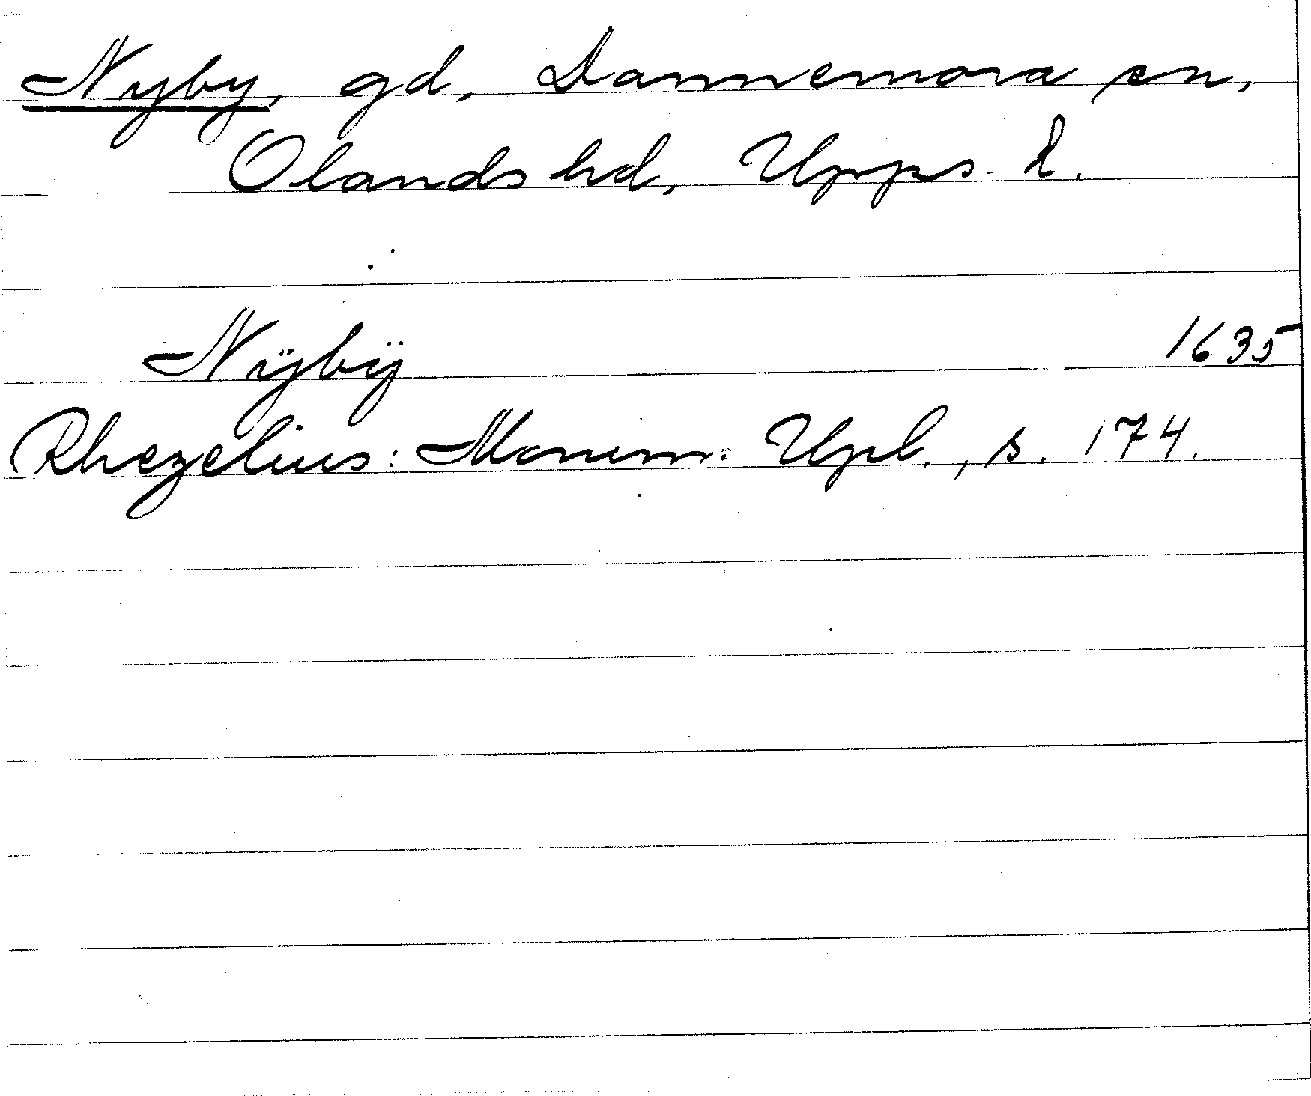 Nyby, gd, Dannemora sn,
Olands hd, Upps. l.
Nÿbÿ 1635
Rhezelius: Monum. Upl., s. 174.